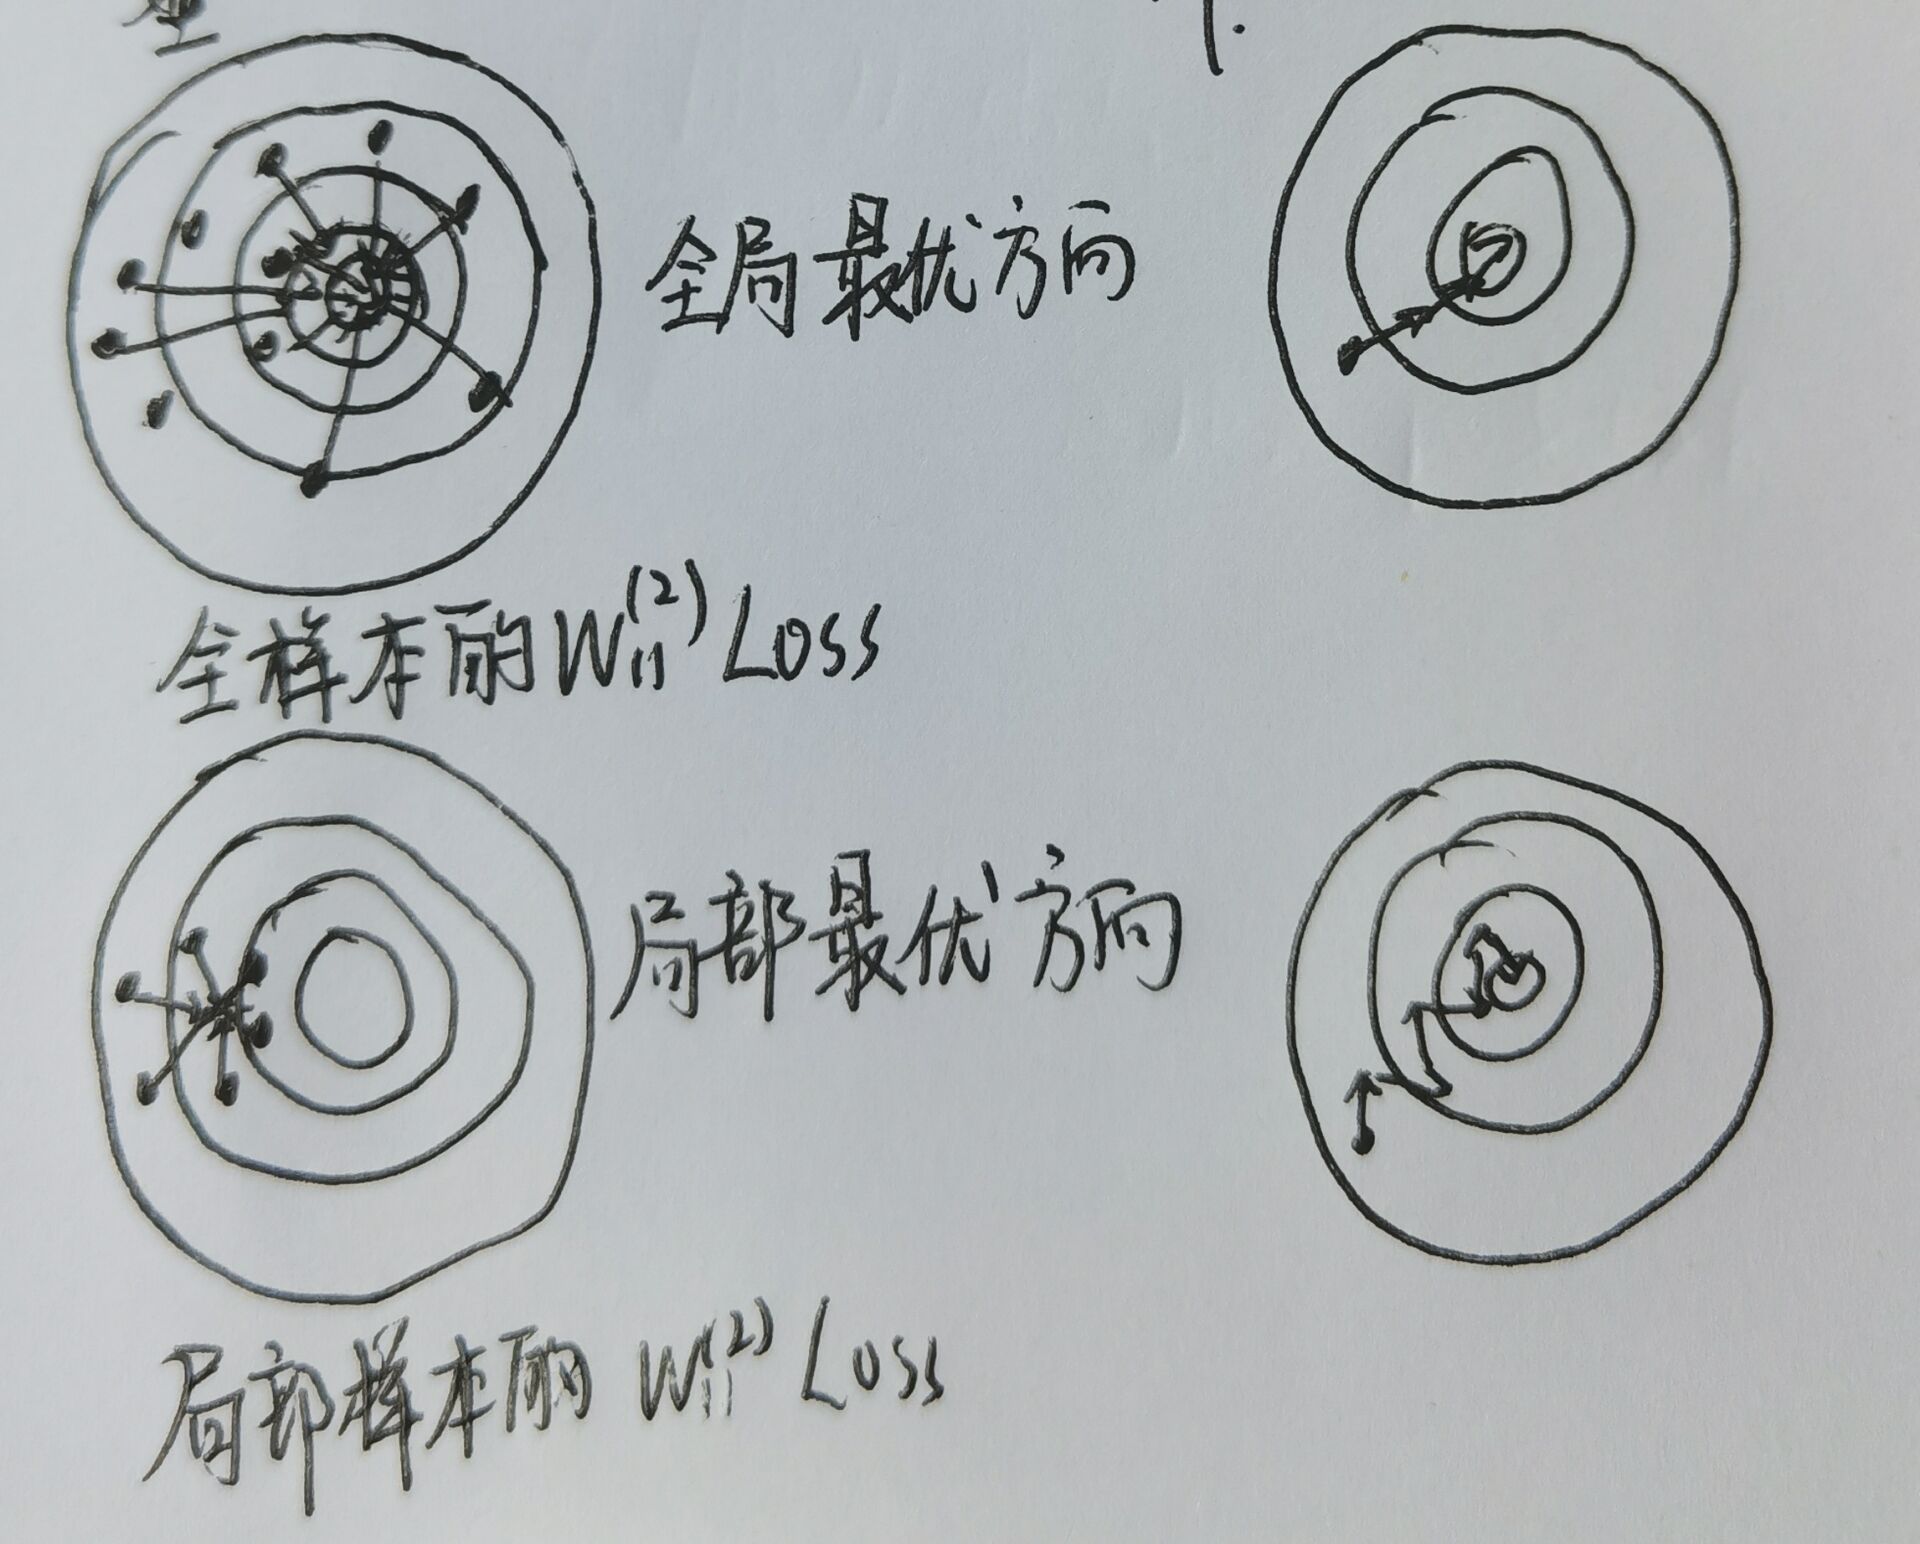 全局最优方向
全样本的W₁₁⁽²⁾ Loss
局部最优方向
局部样本的 W₁₁⁽²⁾ Loss